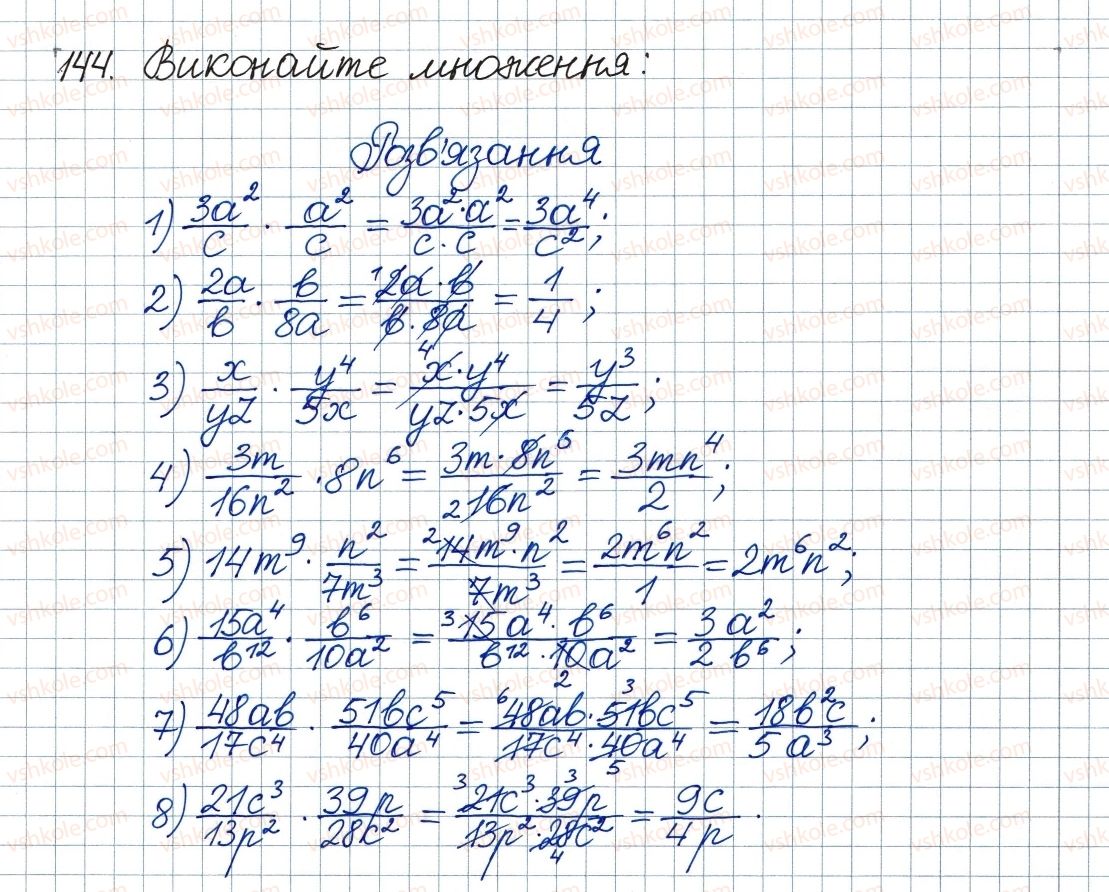 144. Виконайте множення:
Розв'язання
1) 3a²/c · a²/c = 3a²·a²/c·c = 3a⁴/c²;
2) 2a/b · b/8a = ¹2a·b/b·8a₄ = 1/4;
3) x/yz · y⁴/5x = x·y⁴/yz·5x = y³/5z;
4) 3m/16n² · 8n⁶ = 3m·8n⁶/₂16n² = 3mn⁴/2;
5) 14m⁹ · n²/7m³ = ²14m⁹·n²/7m³ = 2m⁶n²/1 = 2m⁶n²;
6) 15a⁴/b¹² · b⁶/10a² = ³15a⁴·b⁶/b¹²·10a²₂ = 3a²/2b⁶;
7) 48ab/17c⁴ · 51bc⁵/40a⁴ = ⁶48ab·³51bc⁵/17c⁴·40a⁴₅ = 18b²c/5a³;
8) 21c³/13p² · 39p/28c² = ³21c³·³39p/13p²·28c²₄ = 9c/4p.